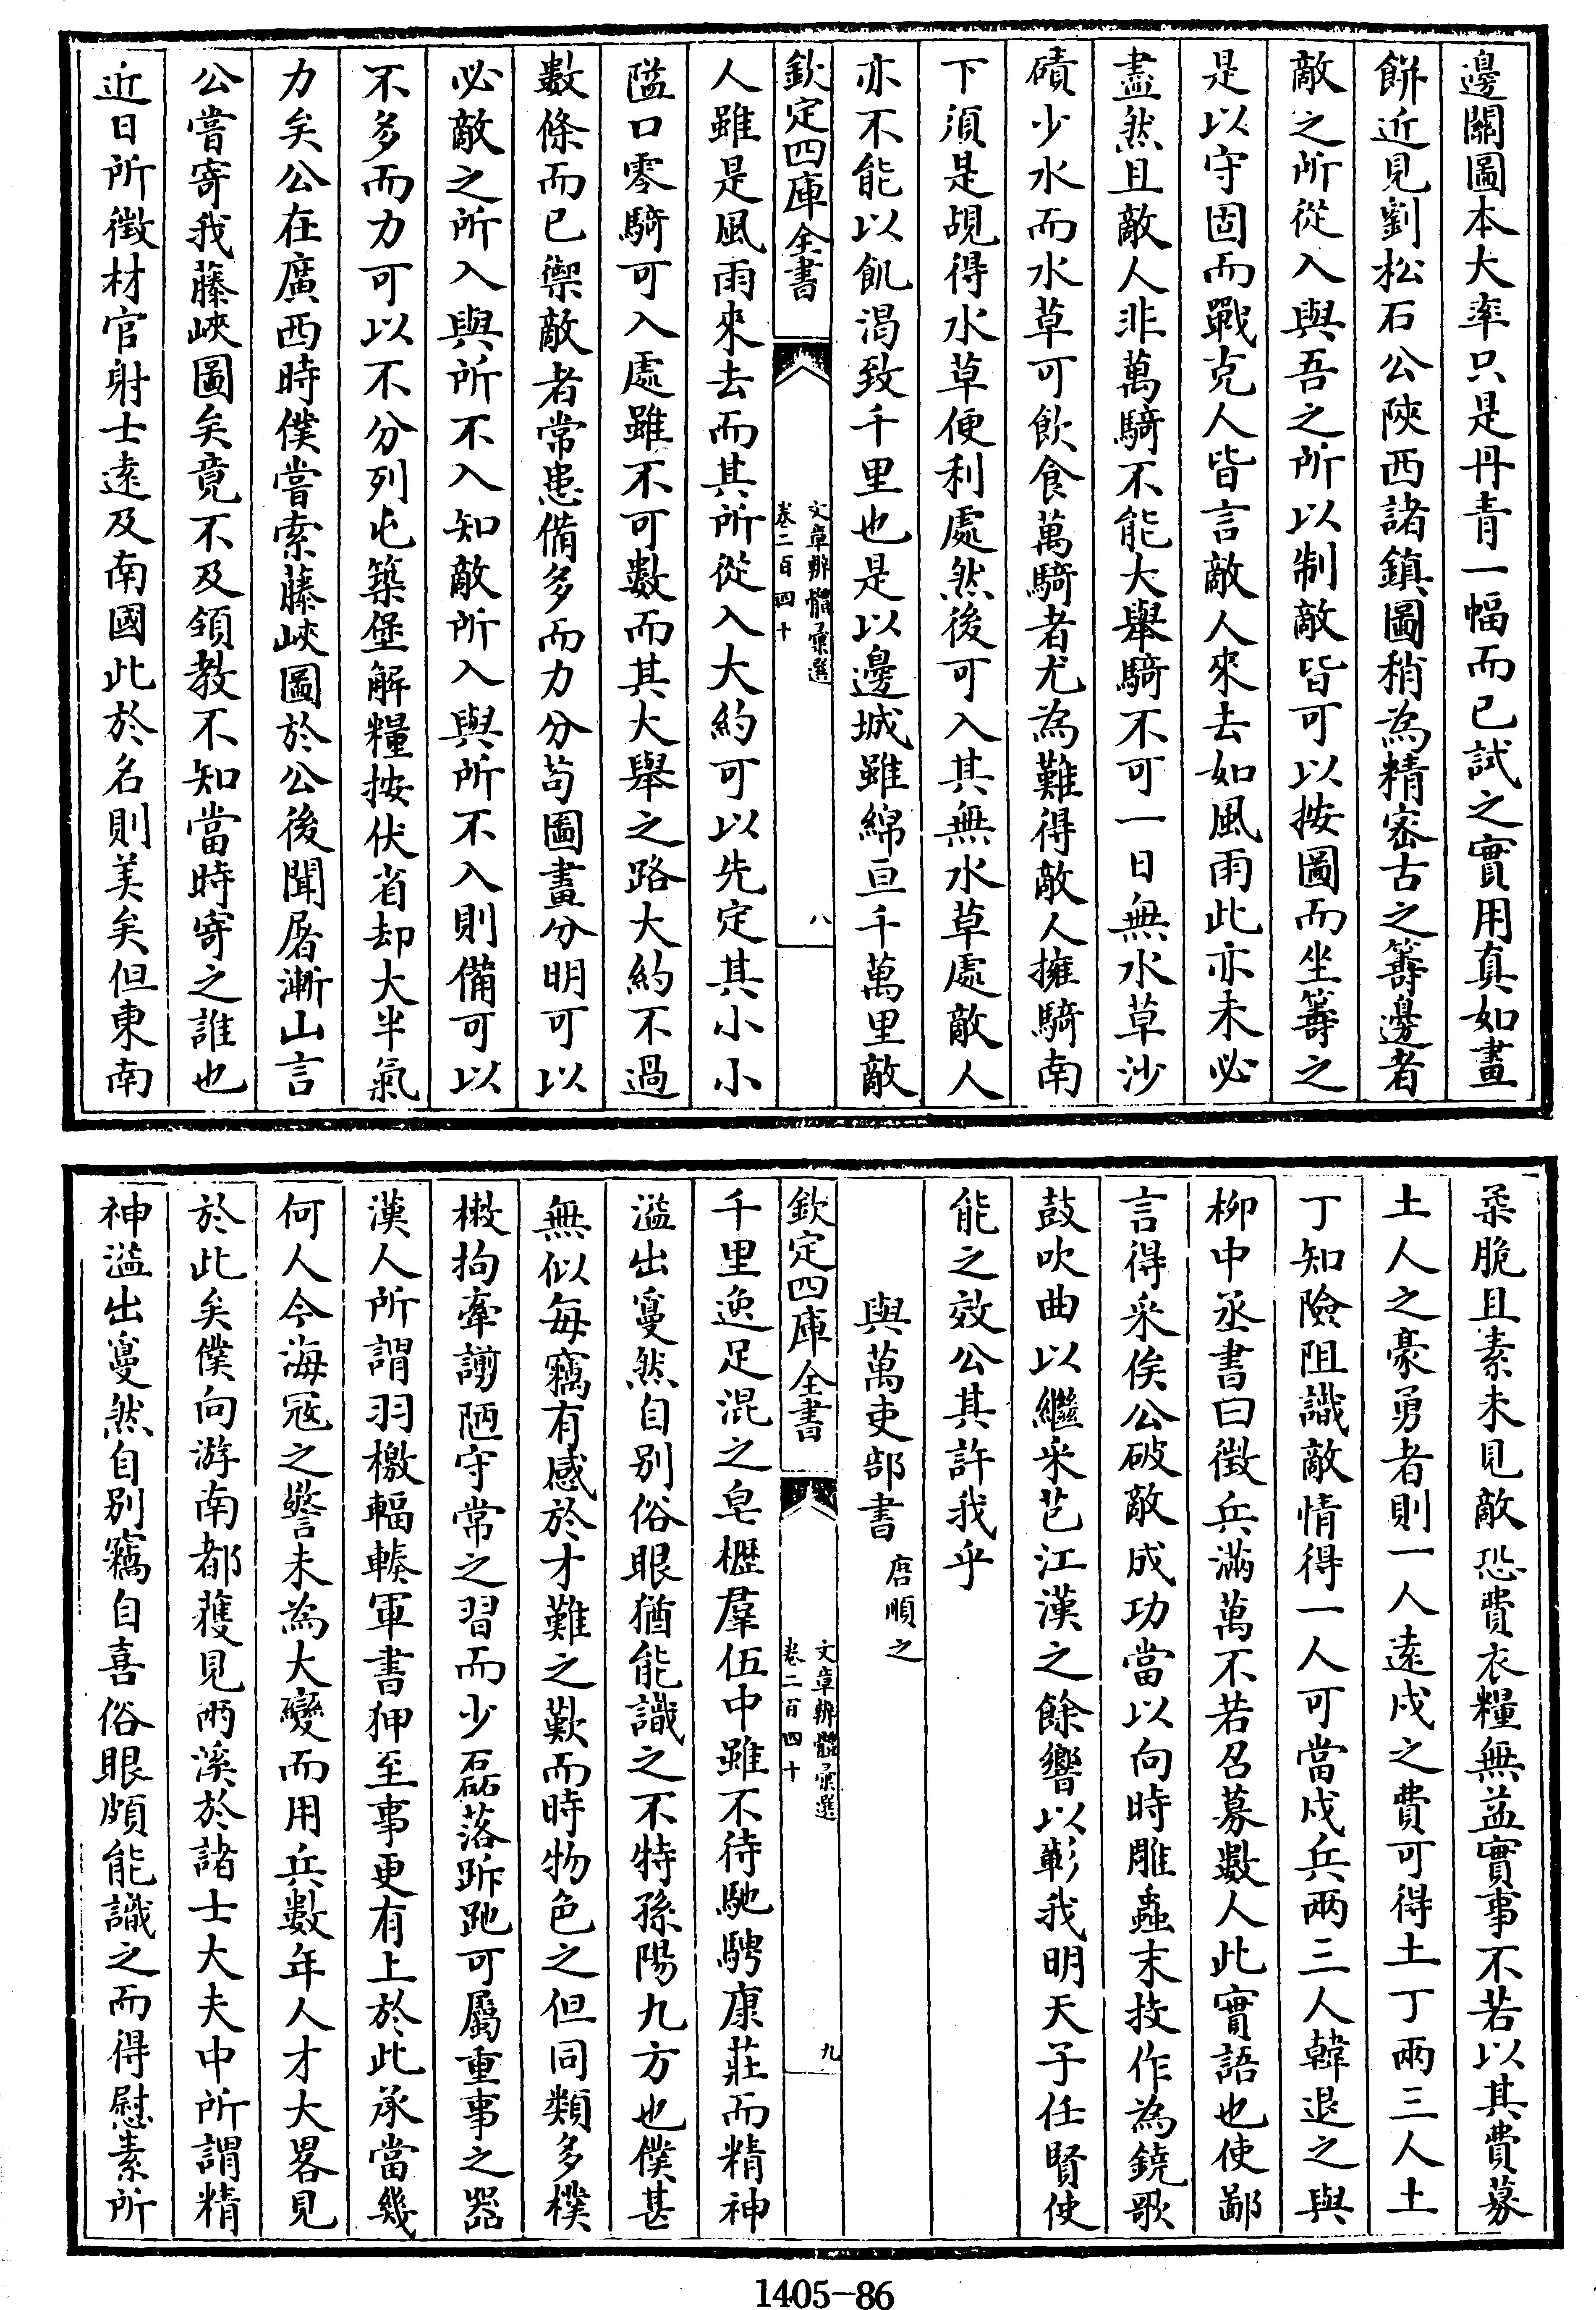 邊關圖本大率只是丹青一幅而已試之實用真如畫
餅近見劉松石公陜西諸鎮圖稍為精密古之籌邊者
敵之所從入與吾之所以制敵皆可以按圖而坐籌之
是以守固而戰克人皆言敵人來去如風雨此亦未必
盡然且敵人非萬騎不能大舉騎不可一日無水草沙
磧少水而水草可飲食萬騎者尤為難得敵人擁騎南
下須是覘得水草便利處然後可入其無水草處敵人
亦不能以飢渴致千里也是以邊城雖綿亘千萬里敵
欽定四庫全書
文章辨體彙選
卷二百四十
八
人雖是風雨來去而其所從入大約可以先定其小小
隘口零騎可入處雖不可數而其大舉之路大約不過
數條而已禦敵者常患備多而力分茍圖畫分明可以
必敵之所入與所不入知敵所入與所不入則備可以
不多而力可以不分列屯築堡解糧按伏省却大半氣
力矣公在廣西時僕嘗索藤峽圖於公後聞屠漸山言
公嘗寄我藤峽圖矣竟不及領教不知當時寄之誰也
近日所徵材官射士逺及南國此於名則美矣但東南
柔脆且素未見敵恐費衣糧無益實事不若以其費募
土人之豪勇者則一人逺戍之費可得土丁兩三人土
丁知險阻識敵情得一人可當戍兵兩三人韓退之與
栁中丞書曰徵兵滿萬不若召募數人此實語也使鄙
言得采俟公破敵成功當以向時雕蟲末技作為鐃歌
鼓吹曲以繼采芑江漢之餘響以彰我明天子任賢使
能之效公其許我乎
與萬吏部書
唐順之
欽定四庫全書
文章辨體彙選
卷二百四十
九
千里逸足混之皂櫪羣伍中雖不待馳騁康莊而精神
溢出敻然自别俗眼猶能識之不特孫陽九方也僕甚
無似每竊有感於才難之歎而時物色之但同類多樸
樕拘牽謭陋守常之習而少磊落跅跎可屬重事之器
漢人所謂羽檄輻輳軍書狎至事更有上於此承當幾
何人今海冦之警未為大變而用兵數年人才大畧見
於此矣僕向游南都獲見兩溪於諸士大夫中所謂精
神溢出敻然自别竊自喜俗眼頗能識之而得慰素所
1405-86